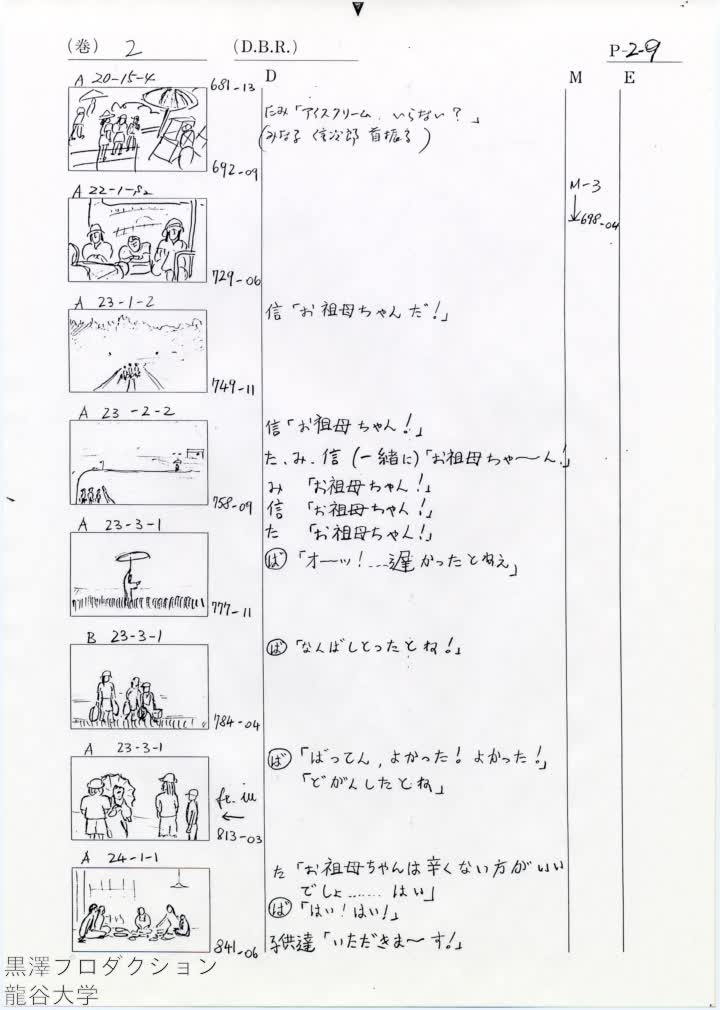 (巻) 2 (D.B.R.) P-2-9
D M E
A 20-15-4 681-13
たみ「アイスクリーム、いらない?」
(みなる 信次郎 首振る)
692-09
A 22-1-
M-3
698-04
729-06
A 23-1-2
信「お祖母ちゃんだ!」
749-11
A 23-2-2
信「お祖母ちゃん!」
た、み、信(一緒に)「お祖母ちゃ〜ん!」
み「お祖母ちゃん!」
758-09
信「お祖母ちゃん!」
A 23-3-1
た「お祖母ちゃん!」
ば「オーッ!…遅かったとねえ」
777-11
B 23-3-1
ば「なんばしとったとね!」
784-04
A 23-3-1
ば「ばってん、よかった!よかった!」
「どがんしたとね」
813-03
A 24-1-1
た「お祖母ちゃんは辛くない方がいい
でしょ……はい」
ば「はい!はい!」
子供達「いただきま〜す!」
841-06
黒澤プロダクション
龍谷大学